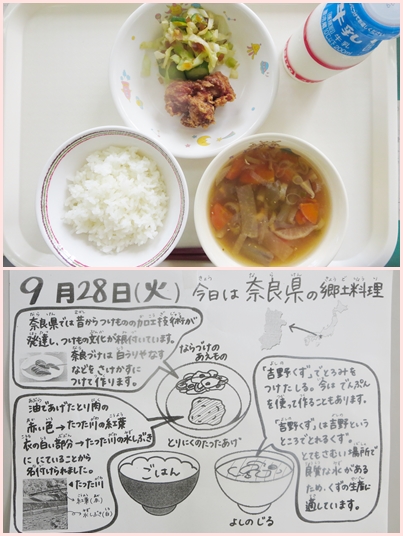 牛乳
9月28日(火) 今日は 奈良県の郷土料理
奈良県では昔からつけものの加工技術が
発達し、つけもの文化が根付いています。
奈良づけは白うりやなす
などをさけかすに
つけて作ります。
ならづけの
あえもの
油であげたとり肉の
赤い色→たつた川の紅葉
衣の白い部分→たつた川の水しぶき
に にていることから
名付けられました。
たつた川
とりにくのたつたあげ
「吉野くず」でとろみを
つけたしる。今は でんぷん
を使って作ることもあります。
「吉野くず」は吉野という
ところでとれるくず。
とてもさむい場所で
良質な水がある
ため、くずの生産に
適しています。
ごはん
よしのじる